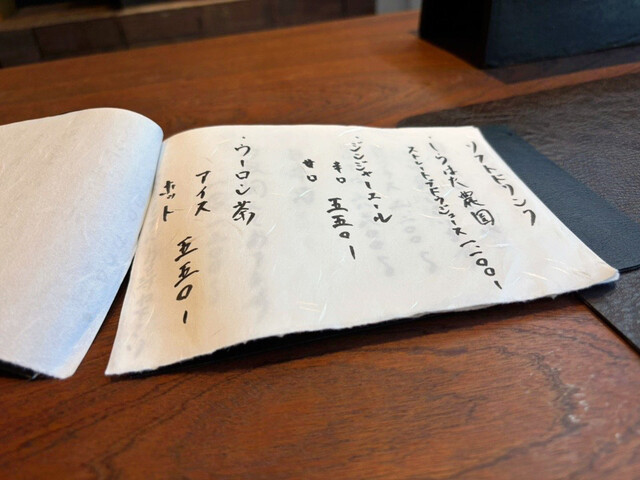 ソフトドリンク
・しらはた農園
ストレートブドウジュース 一、二〇〇ー
・ジンジャーエール
辛口 五五〇ー
甘口
・ウーロン茶
アイス
ホット 五五〇ー